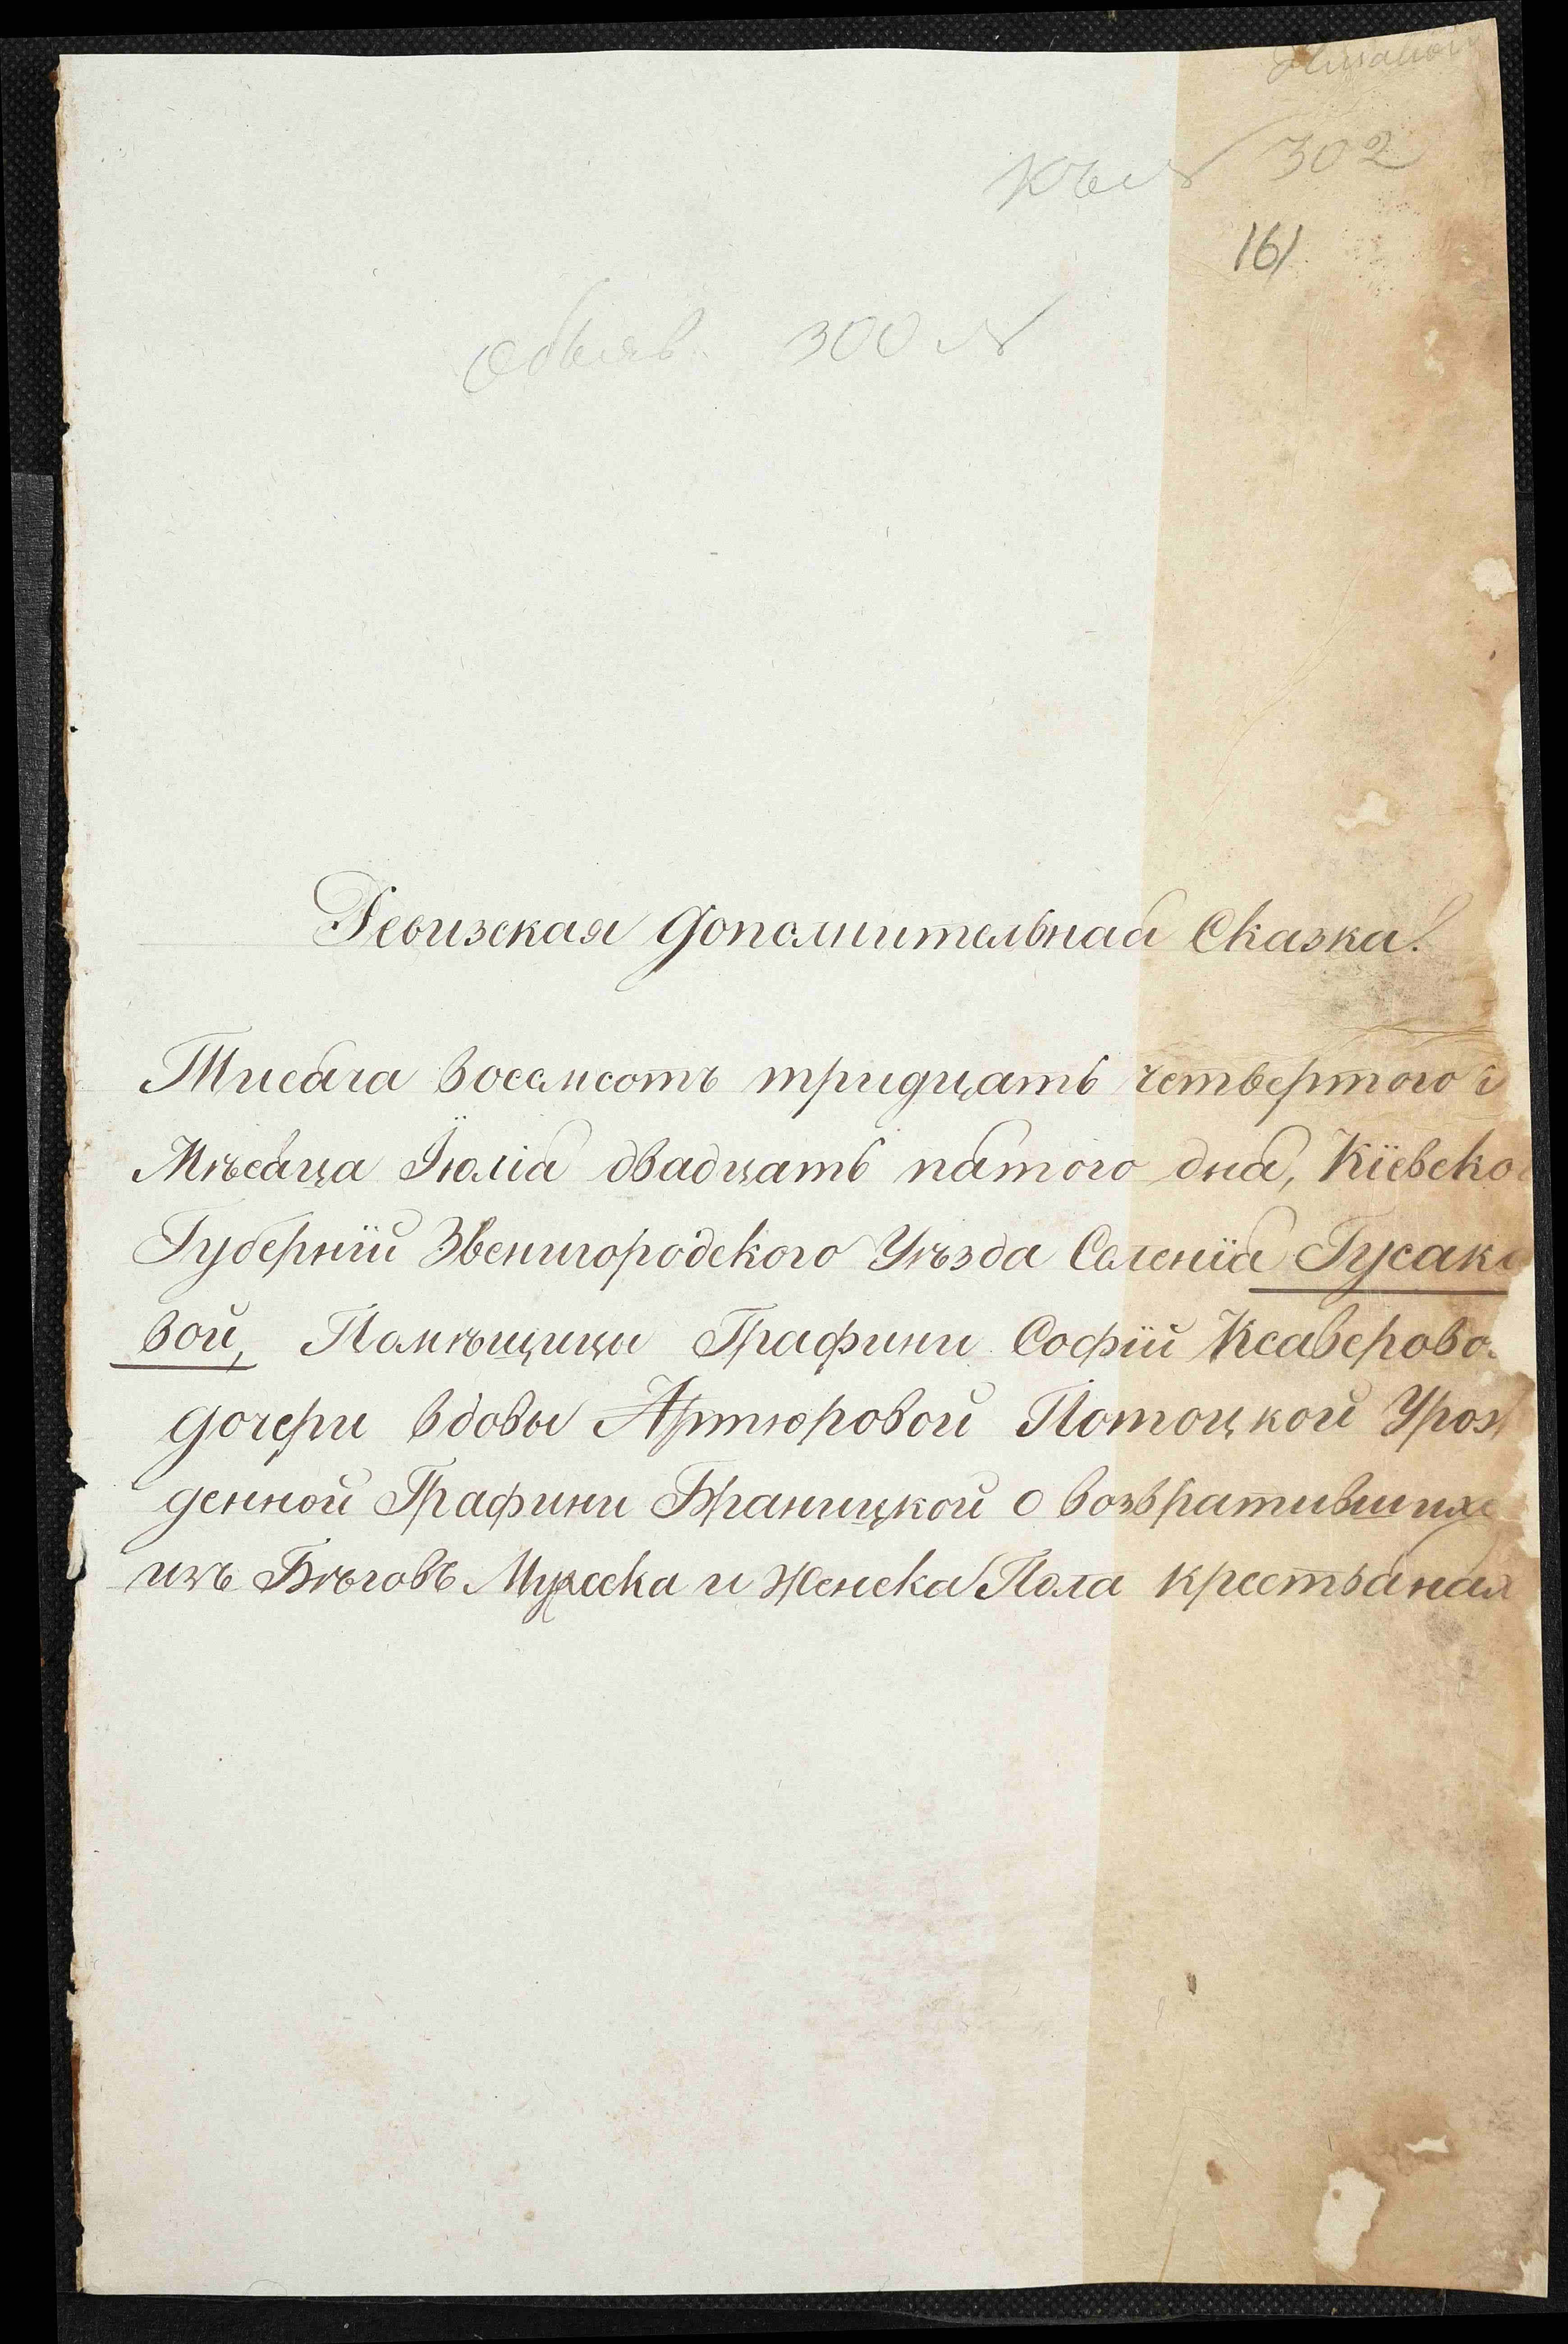 Къ № 302
161
Объяв. 300 №
Ревизская дополнительная Сказка.
Тисяча восемсотъ тридцать четвертого г
Мѣсяца Іюлія двадцать пятого дня, Кіевско
Губерніи Звенигородского Уѣзда Селенія Гусако
вой, Помѣщицы Графини Софіи Ксаверово
дочери вдовы Артюровой Потоцкой Урож
денной Графини Браницкой о возвратившихс
изъ Бѣговъ Мужеска и Женска Пола крестьянах